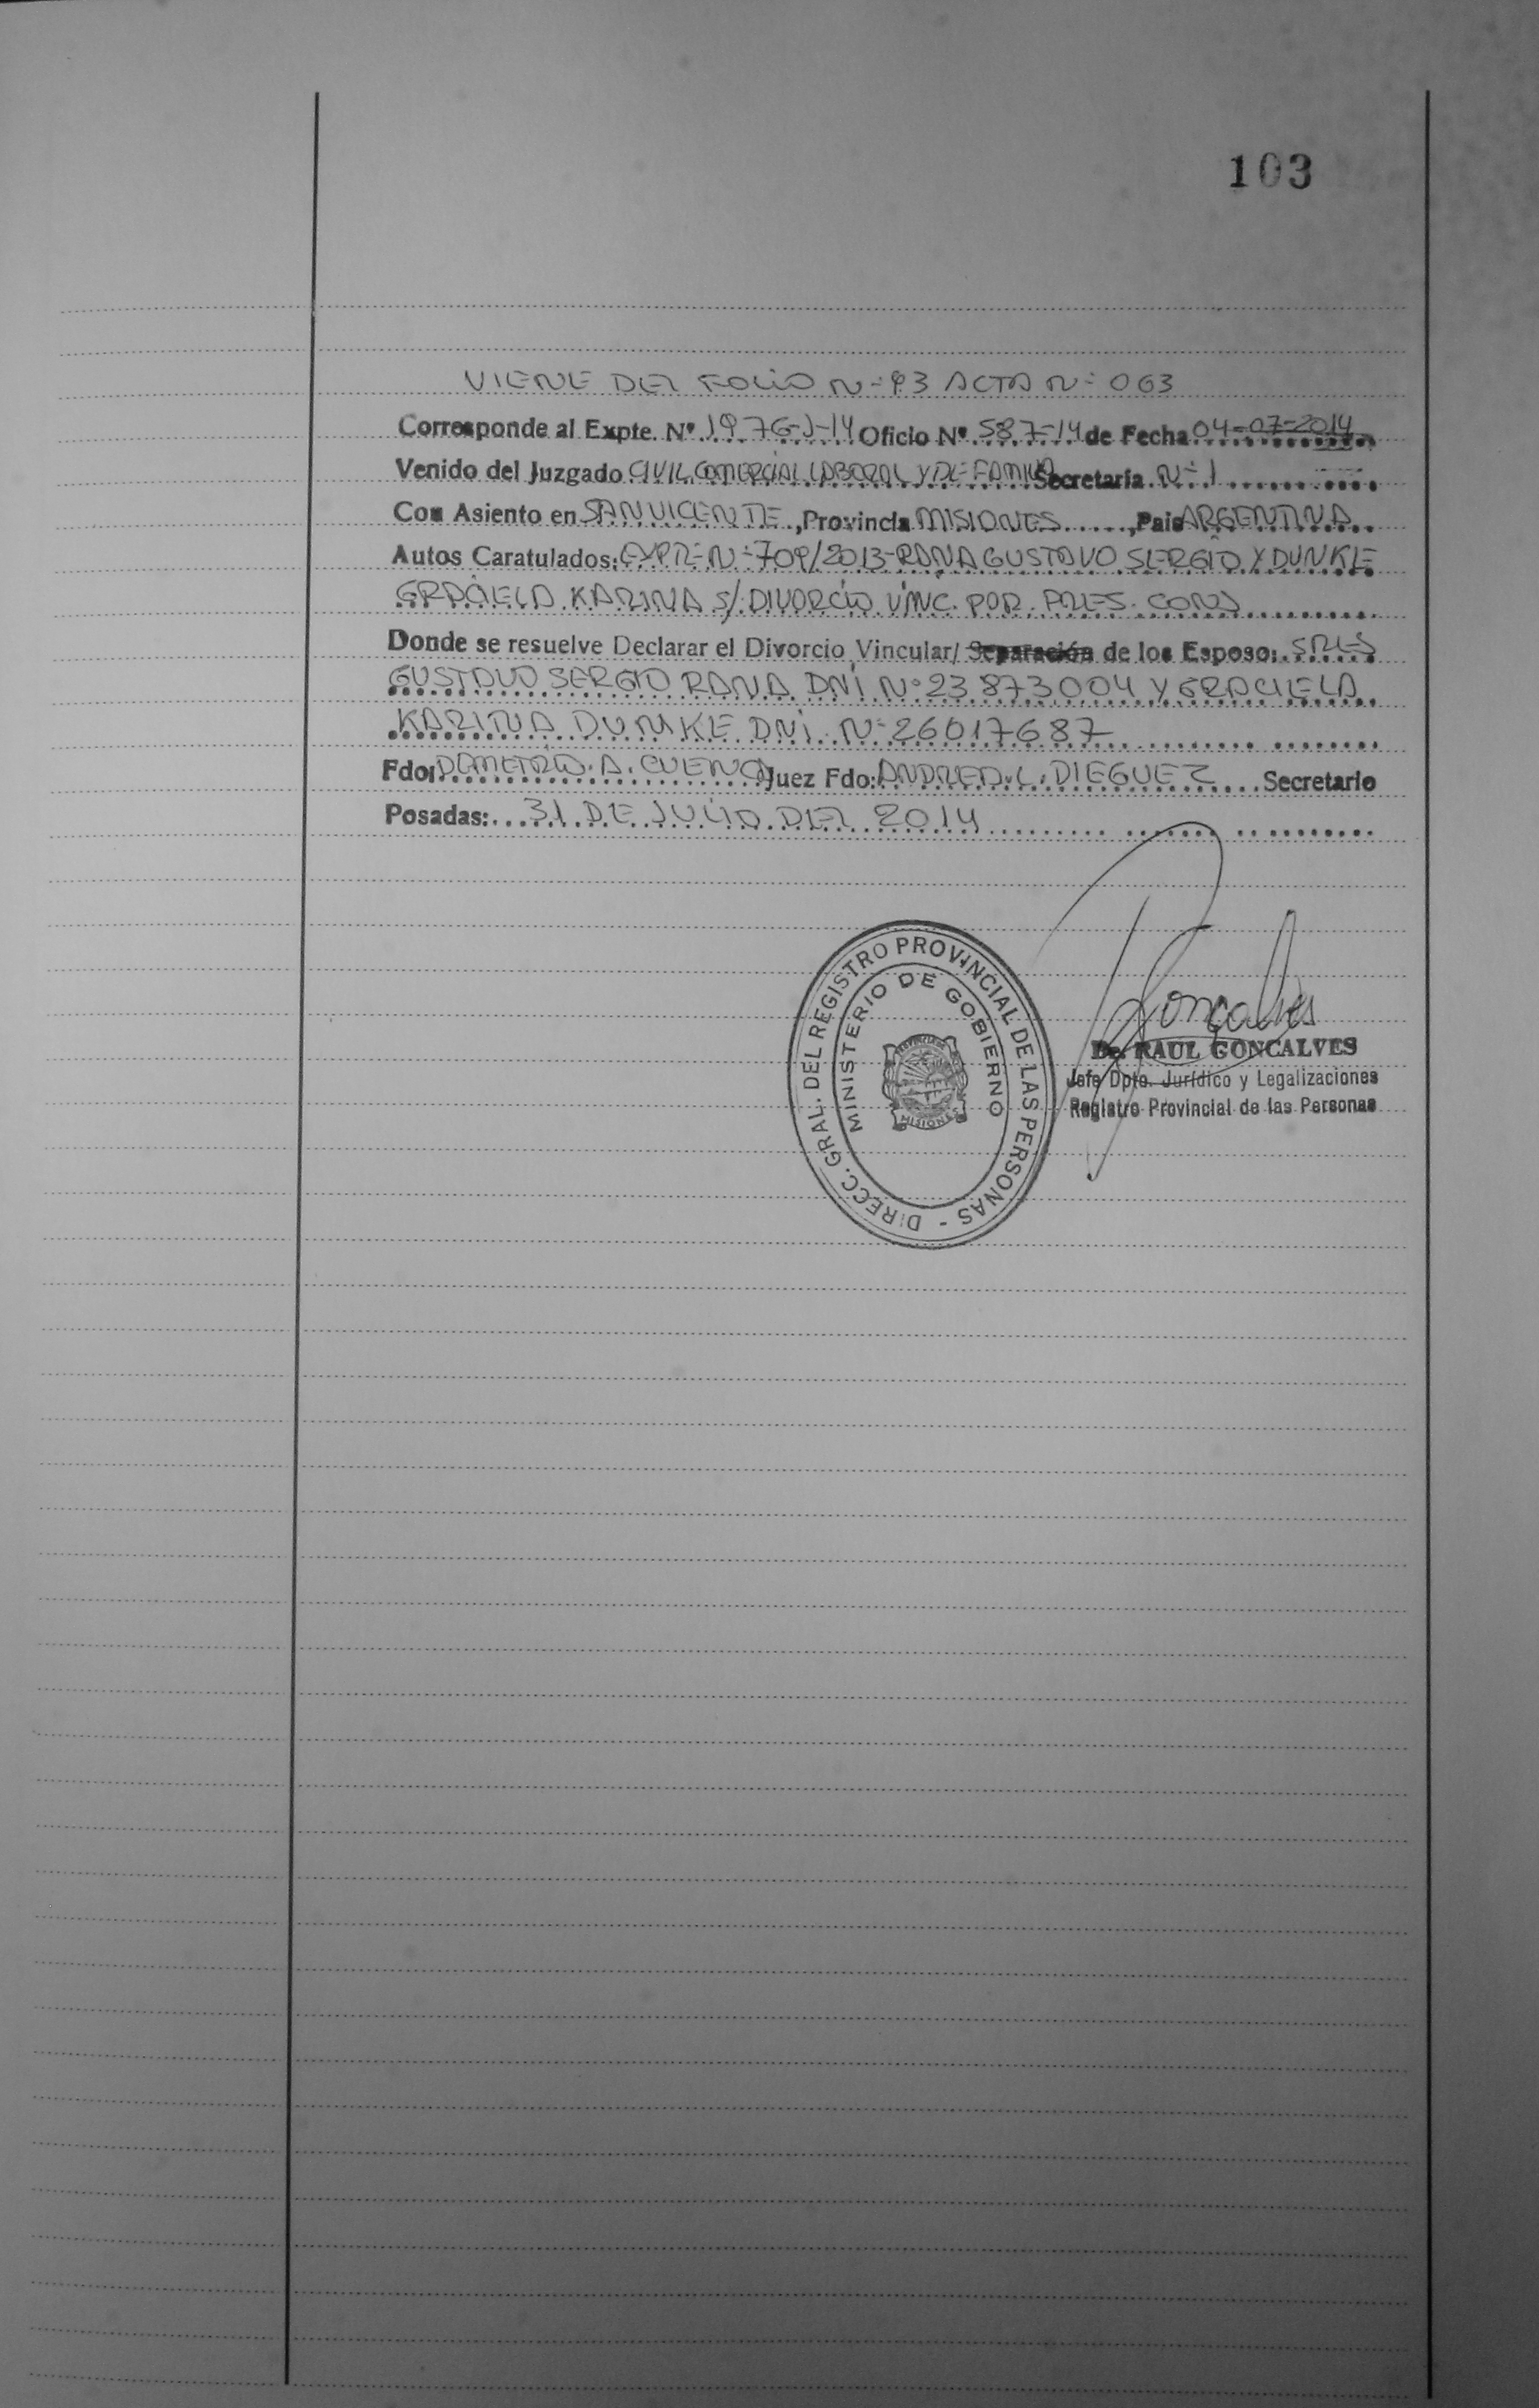 103
VIENE DEL FOLIO N= 93 ACTA N= 063
Corresponde al Expte. Nº 1976-J-14 Oficio Nº 587-14 de Fecha 04-07-2014
Venido del Juzgado CIVIL, COMERCIAL LABORAL Y DE FAMILIA Secretaría N= 1
Con Asiento en SAN VICENTE, Provincia MISIONES, Pais ARGENTINA
Autos Caratulados: EXPTE N= 709/2013-RANA GUSTAVO SERGIO Y DUNKE
GRACIELA KARINA S/ DIVORCIO VINC. POR PRES. CONJ
Donde se resuelve Declarar el Divorcio Vincular/ Separación de los Esposo: SRES
GUSTAVO SERGIO RANA DNI Nº 23873004 Y GRACIELA
KARINA DUNKE DNI N= 26017687
Fdo: DEMETRIO A. CUENCA Juez Fdo: ANDREA L. DIEGUEZ Secretario
Posadas: 31 DE JULIO DEL 2014
DIRECC. GRAL. DEL REGISTRO PROVINCIAL DE LAS PERSONAS -
MINISTERIO DE GOBIERNO
MISIONES
Gonçalves
Dr. RAUL GONCALVES
Jefe Dpto. Jurídico y Legalizaciones
Registro Provincial de las Personas